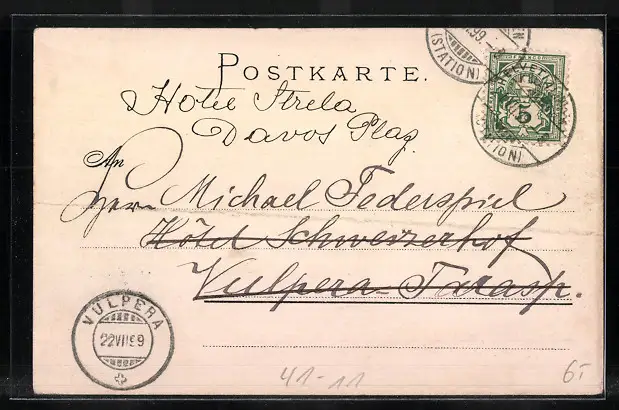 99
(STATION)
POSTKARTE.
HELVETIA
5
Hotel Strela
Davos Platz
An
Herrn Michael Federspiel
Hôtel Schweizerhof
Vulpera-Tarasp.
VULPERA
22 VII 99
41-11
6.-